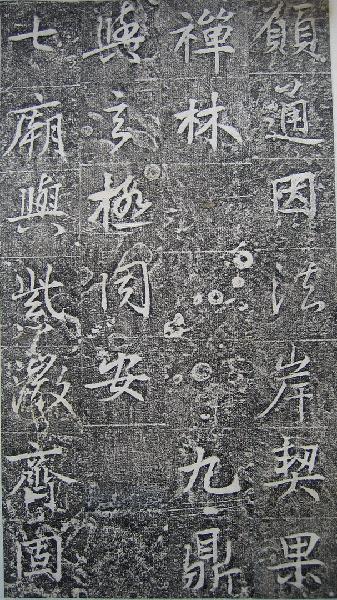 願因法岸契果
禪林九鼎
與玄極同安
七廟與紫微齊固